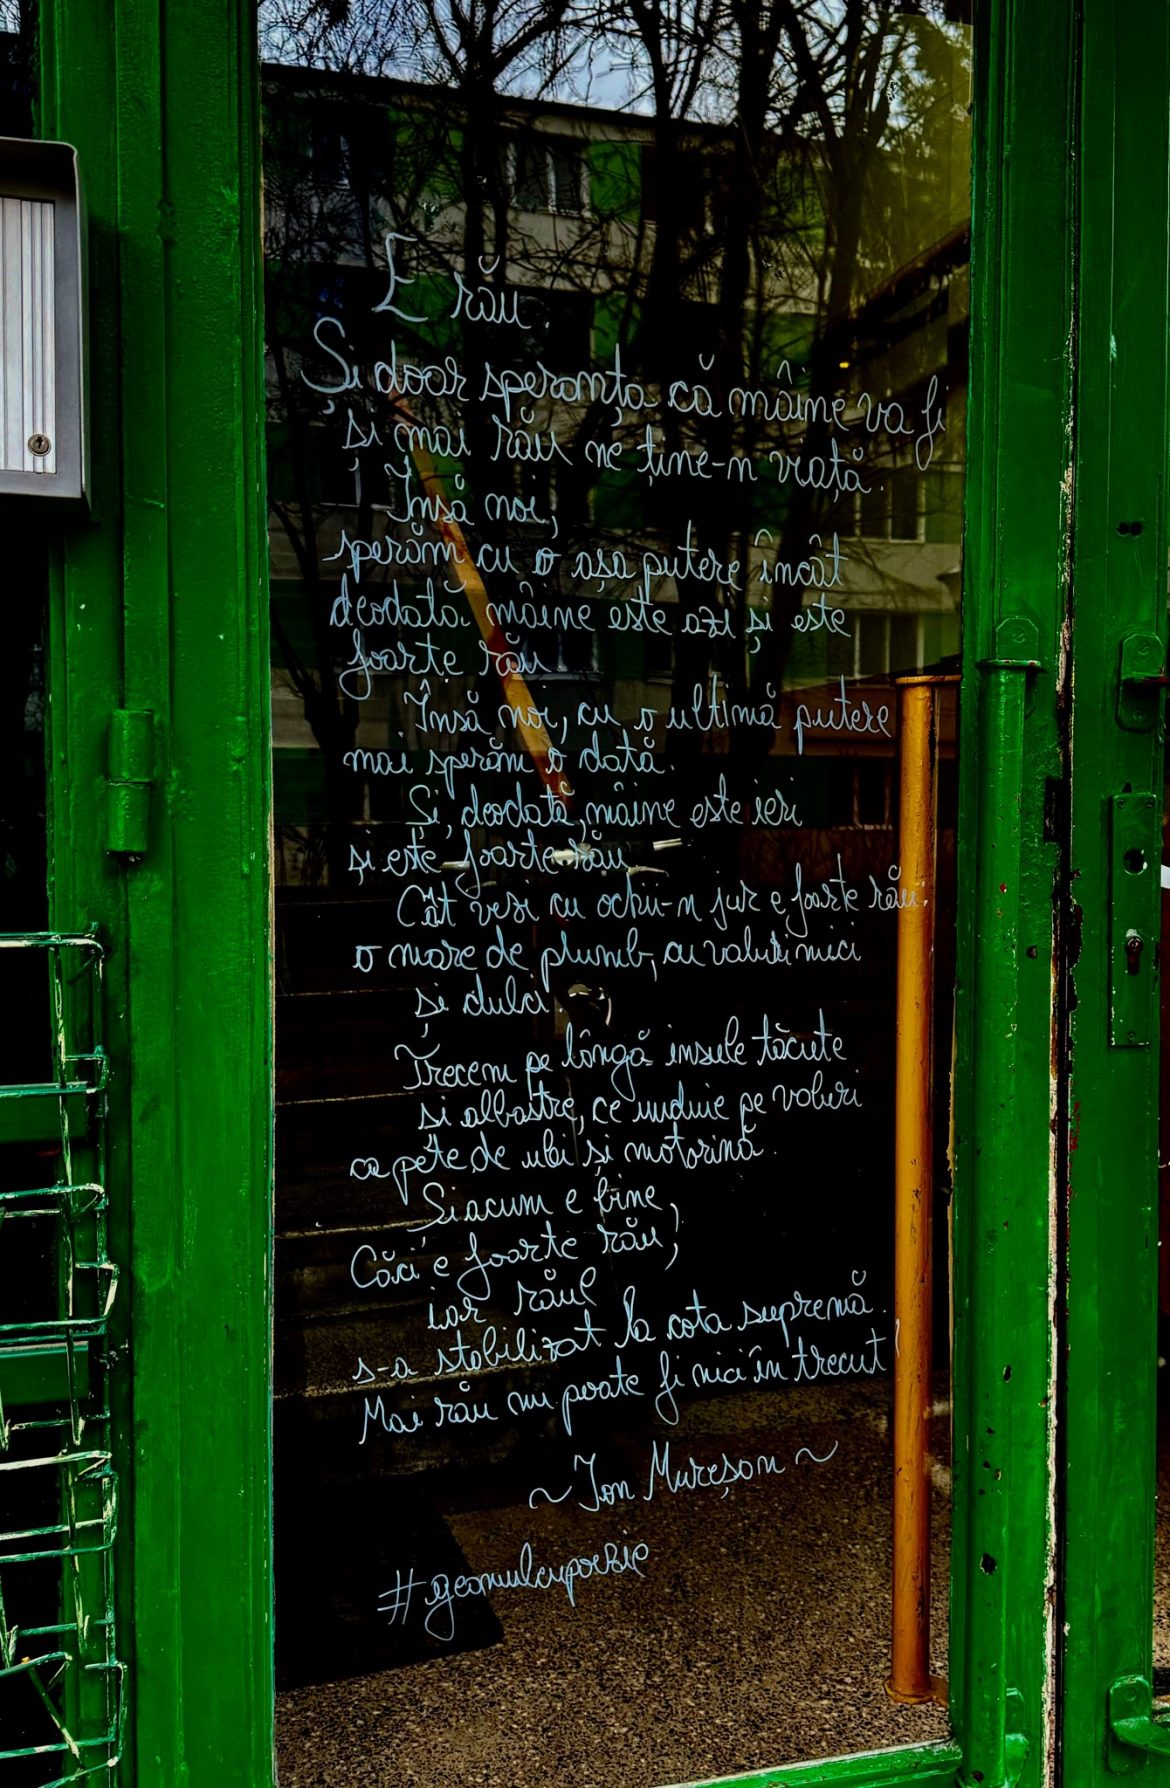 E rău.
Și doar speranța că mâine va fi
și mai rău ne ține-n viață.
Însă noi,
sperăm cu o așa putere încât
deodată mâine este azi și este
foarte rău
Însă noi, cu o ultimă putere
mai sperăm o dată.
Și, deodată, mâine este ieri
și este foarte rău.
Cât vezi cu ochii-n jur e foarte rău:
o mare de plumb, cu valuri mici
și dulci.
Trecem pe lângă insule tăcute
si albastre, ce unduie pe valuri
ca pete de ulei și motorină.
Și acum e bine,
Căci e foarte rău,
iar răul
s-a stabilizat la cota supremă.
Mai rău nu poate fi nici în trecut!
~ Ion Mureșan ~
#geamulcupoezie